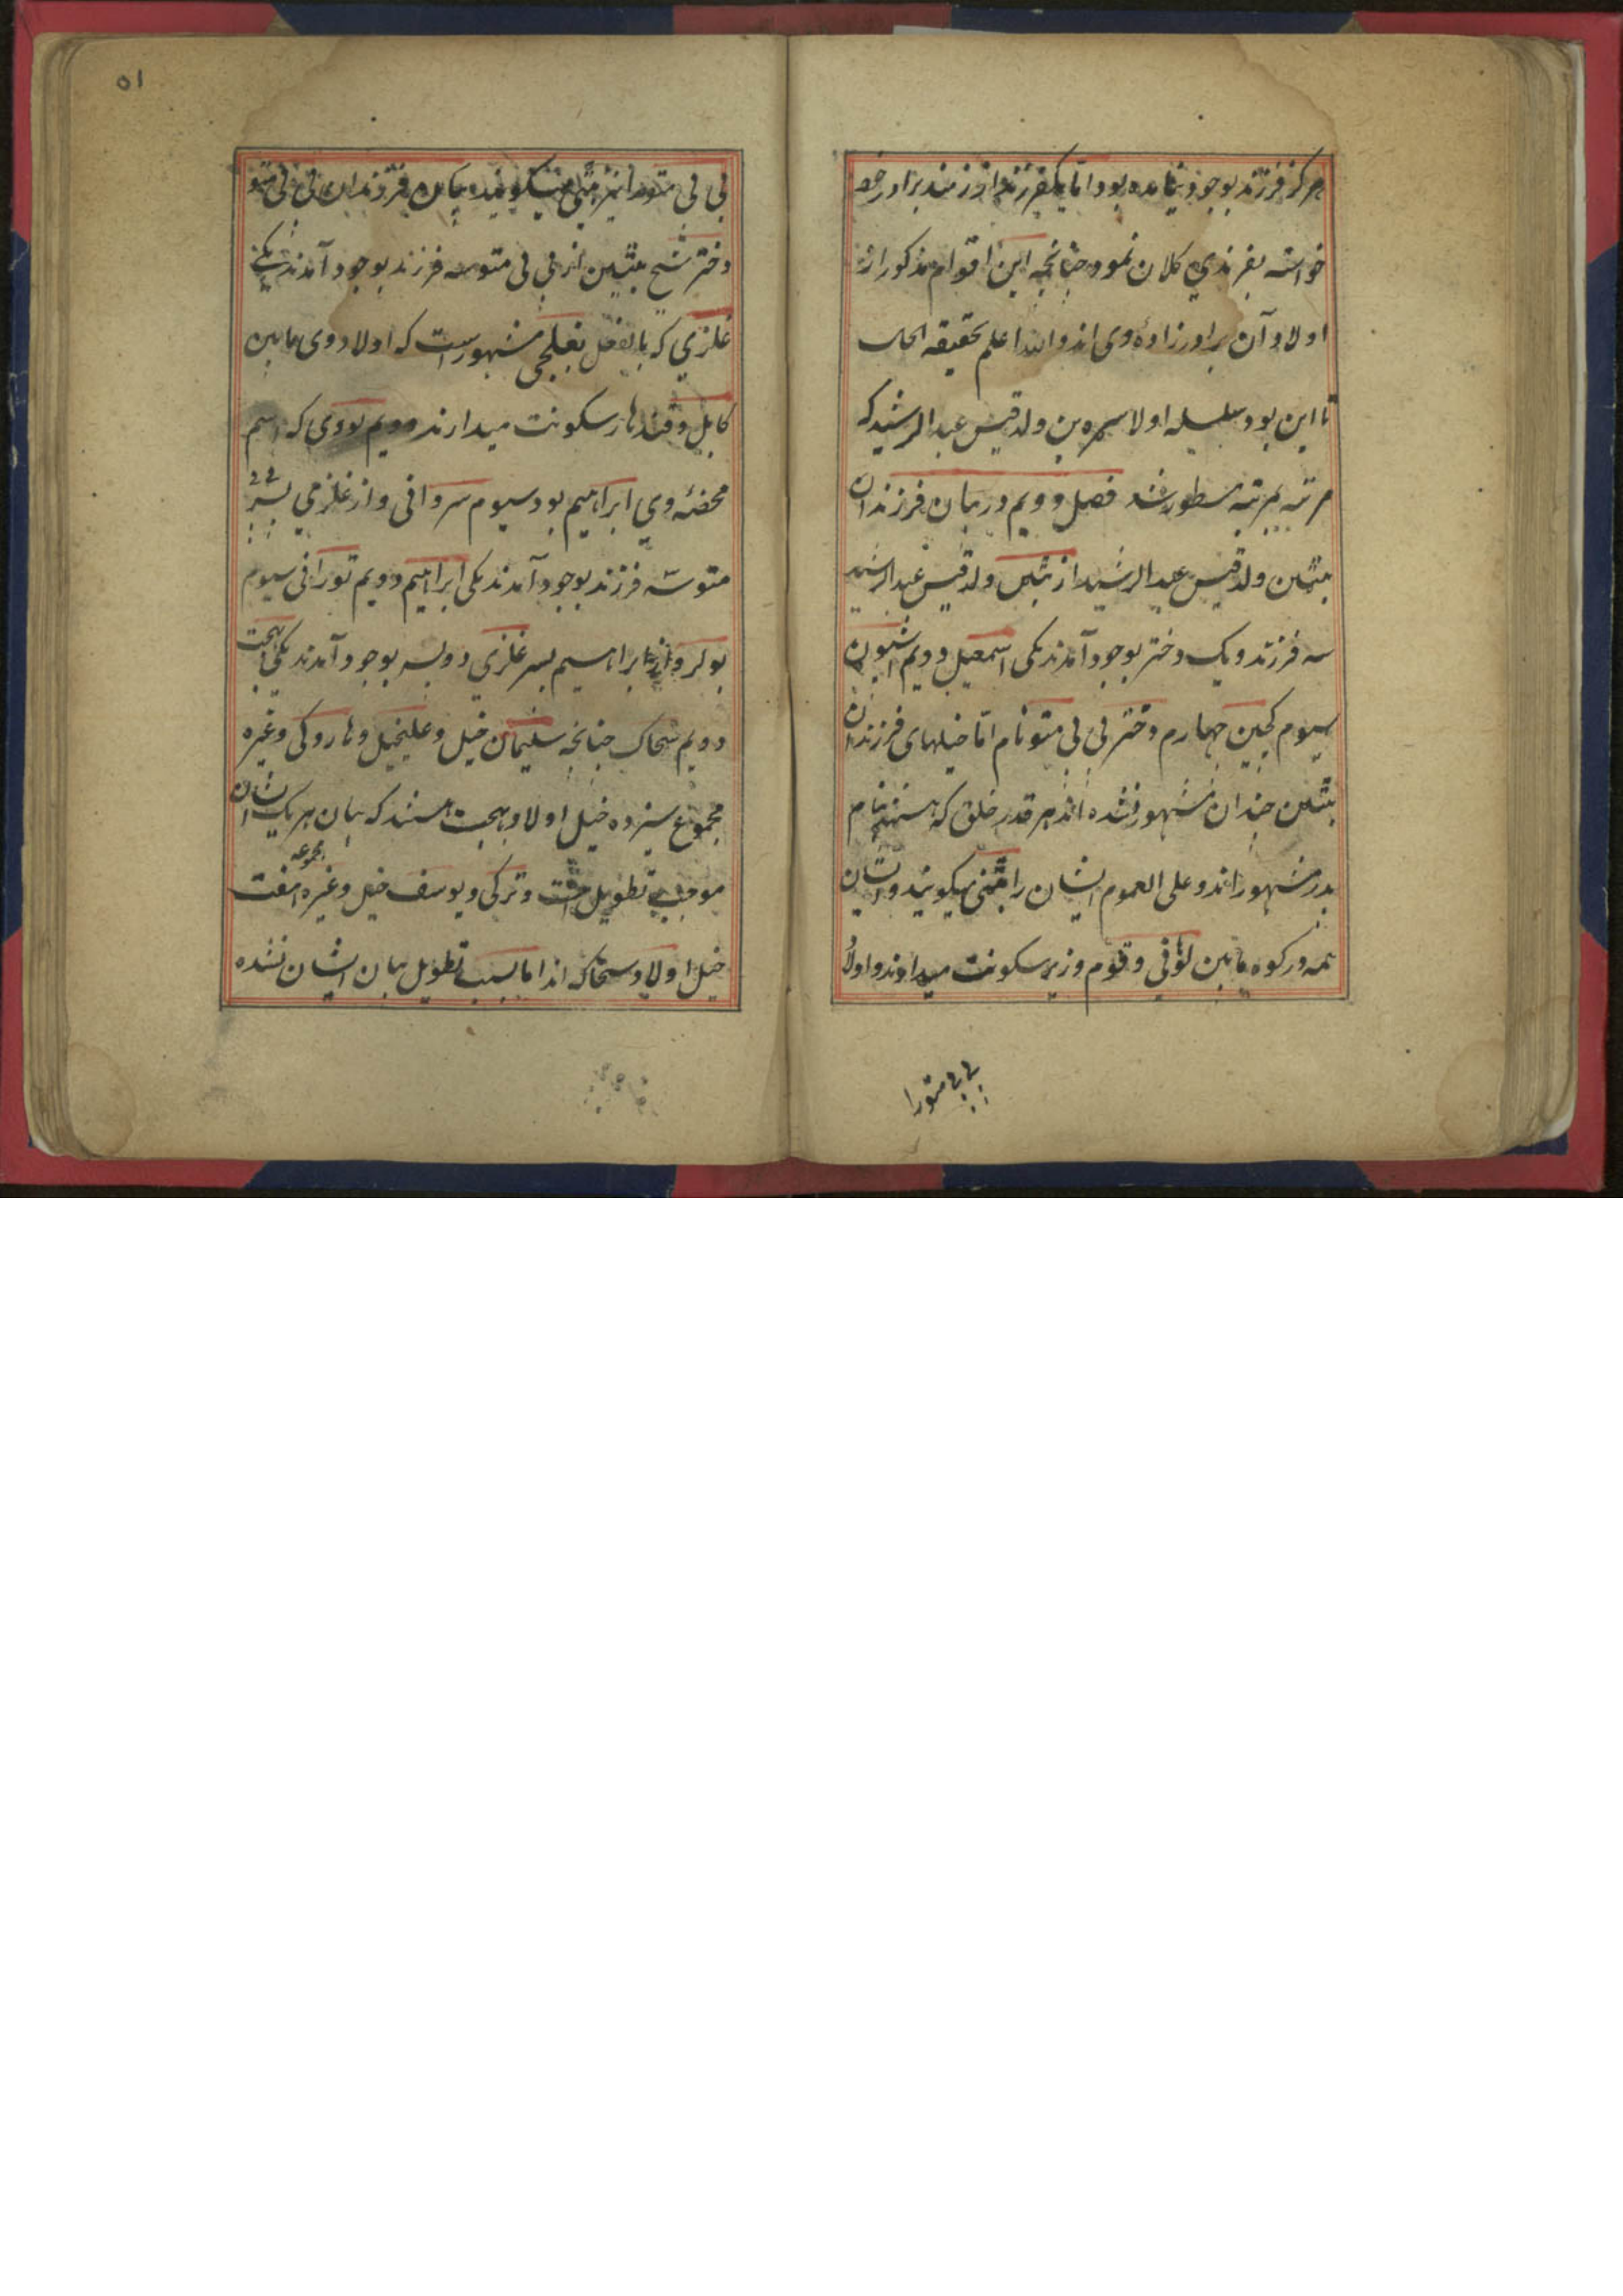 هرکز فرزند بوجود نیامده بود اما یکفرزند از زمند برادر خود
خواسته بفرزندی کلان نمود چنانچه این اقوام مذکور از
اولاد آن برادرزادهٔ وی اند والله اعلم بحقیقه الحال
تا این بود سلسله اولاد سره بن ولد قیس عبدالرشید که
مرتبه بمرتبه مسطور شد فصل دویم در بیان فرزندان
بتین ولد قیس عبدالرشید از بتین ولد قیس عبدالرشید
سه فرزند و یک دختر بوجود آمدند یکی اسمعیل دویم اشبون
سیوم کجین چهارم دختر بی بی متو نام اما خیلهای فرزندان
بتین چندان مشهور نشده اند هر قدر خلق که هستند بنام
پدر مشهور اند و علی العموم ایشان را بتنی میکویند و ایشان
همه در کوه مابین لوانی و قوم وزیر سکونت میدارند و اولاد
بی بی متورا
۵۱
بی بی متورا نیز متی میکویند بیان فرزندان بی بی متو
دختر شیخ بتین از بی بی متو سه فرزند بوجود آمدند یکی
غلزی که بالفعل بغلجی مشهور است که اولاد وی مابین
کابل و قندهار سکونت میدارند دویم لودی که اسم
وی ابراهیم بود سیوم سروانی و از غلزی پسر بی بی
متو سه فرزند بوجود آمدند یکی ابراهیم دویم تورانی سیوم
بولر و از ابراهیم پسر غلزی دو پسر بوجود آمدند یکی بهجت
دویم سحاک چنانچه سلیمان خیل و علیخیل و هاروکی و غیره
مجموع سیزده خیل اولاد بهجت هستند که بیان هریک ایشان
موجب تطویل است و ترکی و یوسف خیل و غیره مجموعه هفت
خیل اولاد سحاک اند اما بسبب تطویل بیان ایشان نشده